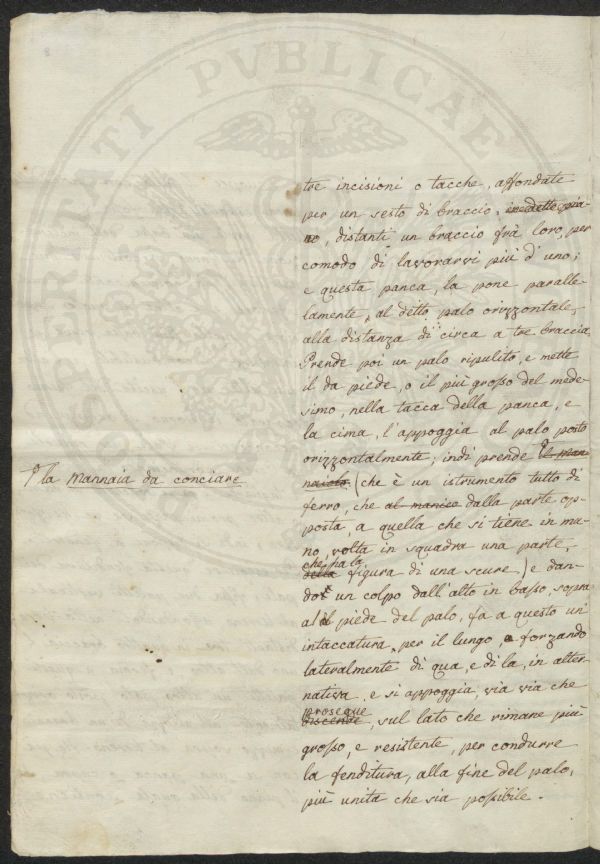 PROSPERITATI PVBLICAE
tre incisioni o tacche, affondate
per un sesto di braccio,
no, distanti un braccio frà loro, per
comodo di lavorarvi più d'uno;
e questa panca, la pone paralle-
lamente, al detto palo orizzontale,
alla distanza di circa a tre braccia.
Prende poi un palo ripulito, e mette
il da piede, o il più grosso del mede-
simo, nella tacca della panca, e
la cima, l'appoggia al palo posto
orizzontalmente; indi prende il man-
naiolo (che è un istrumento tutto di
la Mannaia da conciare
ferro, che al manico dalla parte op-
posta, a quella che si tiene in ma-
no, volta in squadra una parte,
che ha la
della figura di una scure,) e dan-
do un colpo dall'alto in basso, sopra
al piede del palo, fa a questo un'
intaccatura, per il lungo, e forzando
lateralmente di qua, e di la, in alter-
nativa, e si appoggia, via via che
prosegue
discende, sul lato che rimane più
grosso, e resistente, per condurre
la fenditura, alla fine del palo,
più unita che sia possibile.